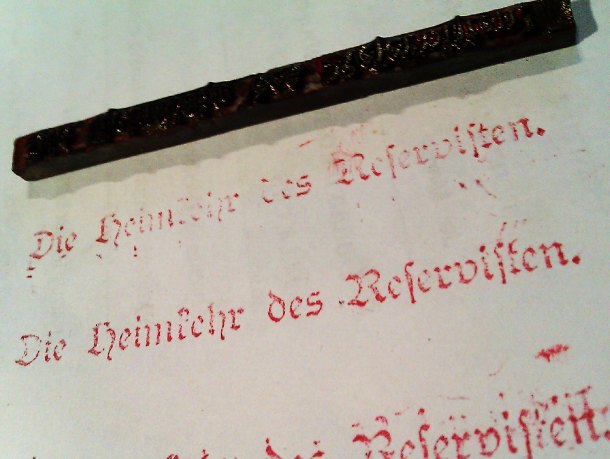 Die Heimkehr des Reserviſten.
Die Heimkehr des Reserviſten.
des Reserviſten.